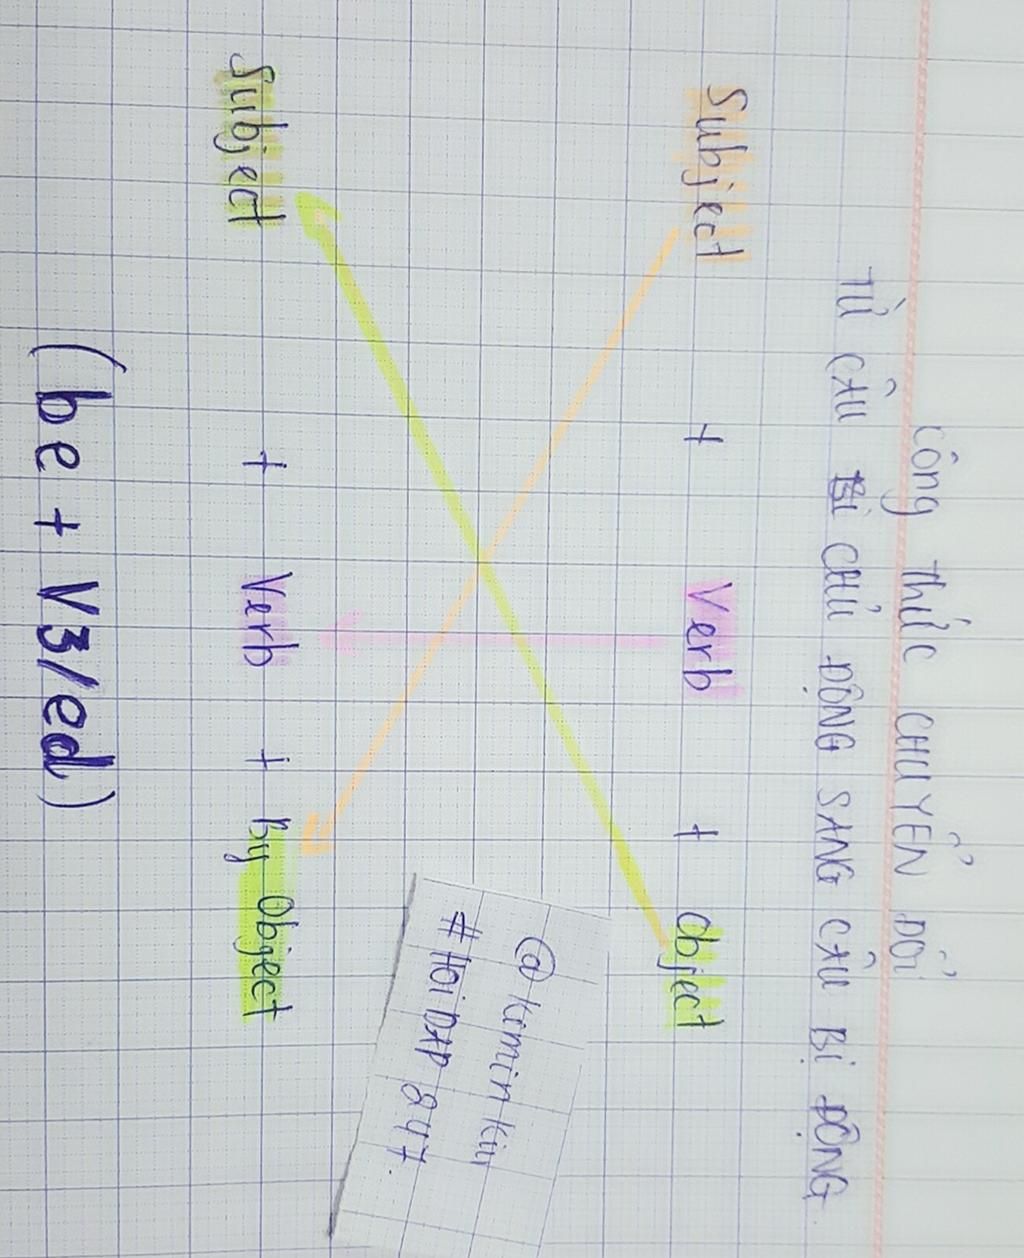 CÔNG THỨC CHUYỂN ĐỔI
TỪ CÂU BỊ CHỦ ĐỘNG SANG CÂU BỊ ĐỘNG
Subject + Verb + Object
Subject + Verb + By Object
(be + V3/ed)
#HOIDAP 247